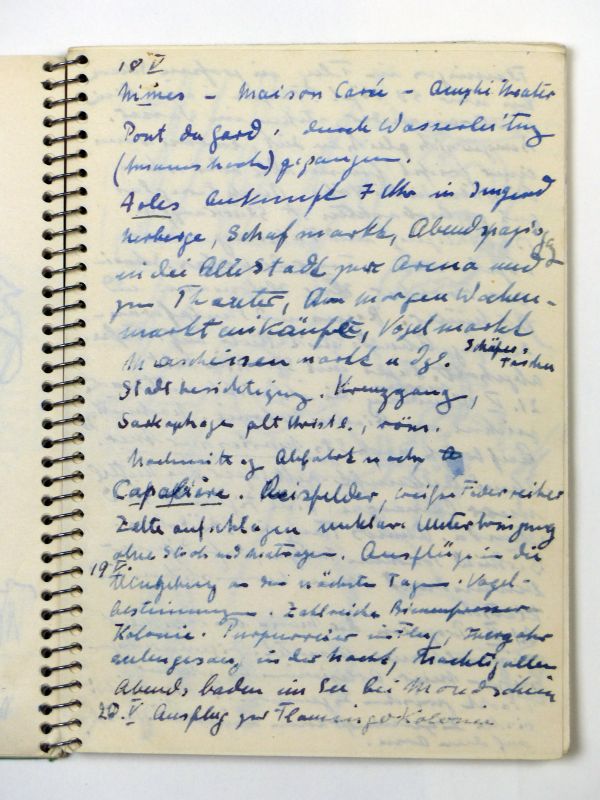 18 V
Nîmes - Maison Carée - Amphitheater
Pont du Gard, durch Wasserleitung
(mannshoch) gegangen.
Arles Ankunft 7 Uhr in Jugend
herberge, Schafmarkt, Abendspazierg
in die Altestadt zur Arena und
zum Theater, Am morgen Wochen-
markt einkäufe, Vogelmarkt
Maschinenmarkt u dgl. Schäfer-
taschen
Stadtbesichtigung. Kreuzgang,
Sarkophage altchristl., röm.
Nachmittag Abfahrt nach
Capelière. Reisfelder, weiße Federreiher
Zelte aufschlagen unklare Unterbringung
ohne Stroh und Matratzen. Ausflüge in die
19 V.
Umgebung an den nächsten Tagen. Vogel-
bestimmungen. Zahlreiche Bienenfresser
Kolonie. Purpurreiher im Flug, Zwergohr
eulengesang in der Nacht, Nachtigallen
Abends baden im See bei Mondschein
20.V Ausflug zur Flamingokolonie